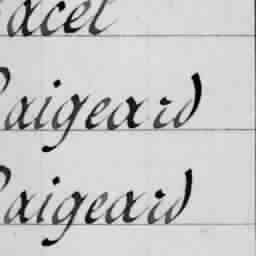 acet
aigeard
aigeard